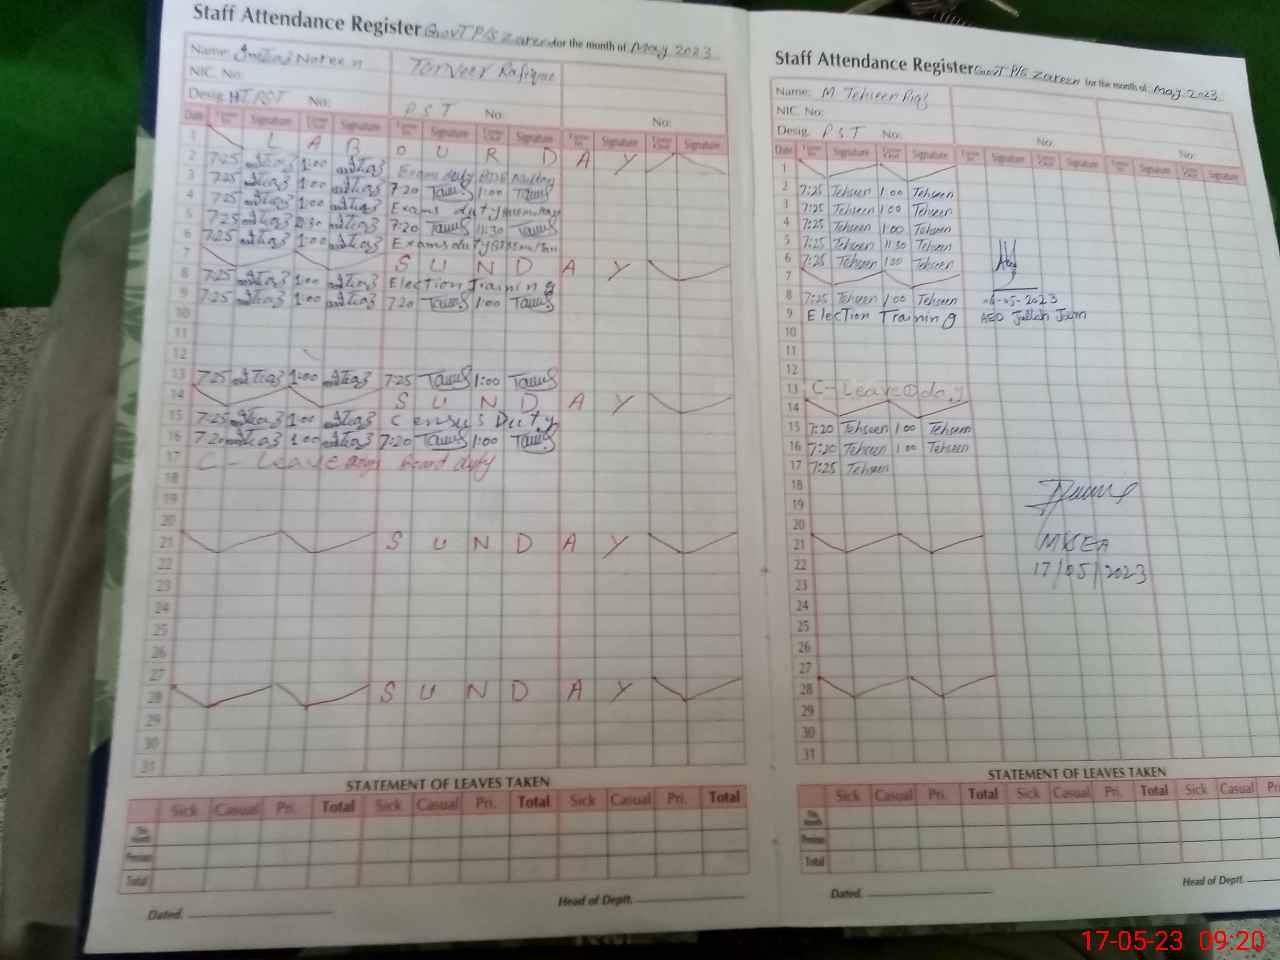 Staff Attendance Register Govt P/S Zareen for the month of May 2023
Name: Imtiaz Noreen Tanveer Rafique
NIC. No:
Desig. HT.PST No: PST No: No:
Date Signature Signature Signature Signature Signature Signature
1 L A B O U R D A Y
2 7:25 1:00 Exams duty
3 7:25 1:00 7:20 1:00
4 7:25 1:00 Exams duty
5 7:25 11:30 7:20 11:30
6 7:25 1:00 Exams duty
7 S U N D A Y
8 7:25 1:00 Election Training
9 7:25 1:00 7:20 1:00
10
12
13 7:25 1:00 7:25 1:00
14 S U N D A Y
15 7:25 1:00 Census Duty
16 7:20 1:00 7:20 1:00
17 C - Leave Board duty
18
19
20
21 S U N D A Y
22
23
24
25
26
27
28 S U N D A Y
29
30
31
STATEMENT OF LEAVES TAKEN
Sick Casual Pri. Total Sick Casual Pri. Total Sick Casual Pri. Total
This Month
Previous
Total
Dated. Head of Deptt.
Staff Attendance Register Govt P/S Zareen for the month of May 2023
Name: M Tehseen Riaz
NIC. No:
Desig. PST No: No: No:
Date Signature Signature Signature Signature Signature Signature
1
2 7:25 Tehseen 1:00 Tehseen
3 7:25 Tehseen 1:00 Tehseen
4 7:25 Tehseen 1:00 Tehseen
5 7:25 Tehseen 11:30 Tehseen
6 7:25 Tehseen 1:00 Tehseen
7
8 7:25 Tehseen 1:00 Tehseen 06-05-2023
9 Election Training AEO Jullah Jam
10
11
12
13 C-Leave ① day
14
15 7:20 Tehseen 1:00 Tehseen
16 7:20 Tehseen 1:00 Tehseen
17 7:25 Tehseen
18
19
20
21 MEA
22 17/05/2023
23
24
25
26
27
28
29
30
31
STATEMENT OF LEAVES TAKEN
Sick Casual Pri. Total Sick Casual Pri. Total Sick Casual
This Month
Previous
Total
Dated. Head of Deptt.
17-05-23 09:20